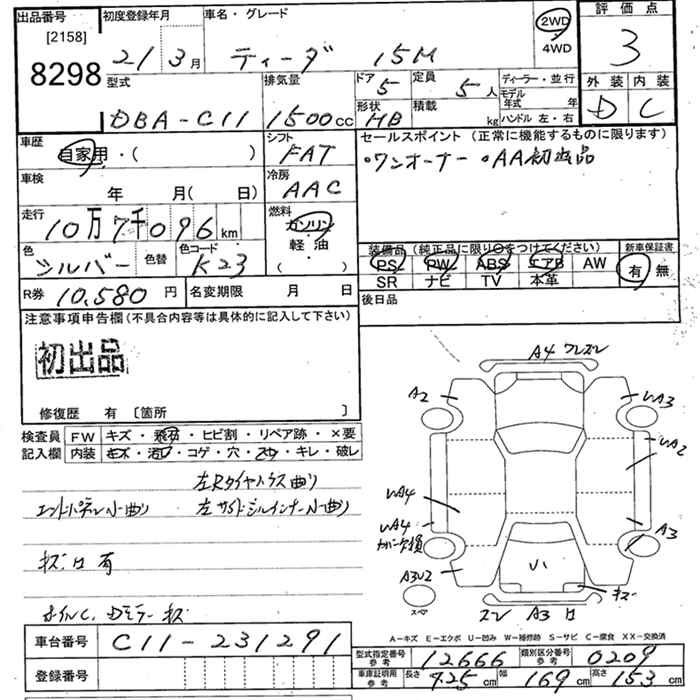 出品番号
[2158]
8298
初度登録年月
21 3月
車名・グレード
ティーダ 15M
2WD
4WD
評価点
3
外装 内装
D C
型式
DBA-C11
排気量
1500cc
ドア
5
定員
5人
形状
HB
積載
kg
ディーラー・並行
モデル年式 年
ハンドル 左・右
車歴
自家用・( )
シフト
FAT
セールスポイント(正常に機能するものに限ります)
・ワンオーナー ・AA初出品
車検
年 月(日)
冷房
AAC
走行
10万7千096km
燃料
ガソリン
軽油
・
( )
色
シルバー
色替
色コード
K23
装備品(純正品に限り○をつけてください)
PS PW ABS エアB AW
SR ナビ TV 本革
新車保証書
有 無
R券 10,580円
名変期限 月 日
後日品
注意事項申告欄(不具合内容等は具体的に記入して下さい)
初出品
修復歴 有 〔箇所 〕
検査員
記入欄
FW キズ・飛石・ヒビ割・リペア跡・×要
内装 キズ・汚レ・コゲ・穴・スレ・キレ・破レ
左Rタイヤハウス曲り
エンドパネル小曲り 左サイドシルインナー小曲り
キズ凹有
ホイルC、Dミラーキズ
A4 ワレズレ
A2
A3
A2
A4
A4
カバー欠損
A3
A3U2
スペア
キズ
ズレ A3 凹
A-キズ E-エクボ U-凹み W-補修跡 S-サビ C-腐食 XX-交換済
車台番号
C11-231291
登録番号
型式指定番号
参考
12666
類別区分番号
参考
0209
車庫証明用
参考
長さ 425cm 幅 169cm 高さ 153cm